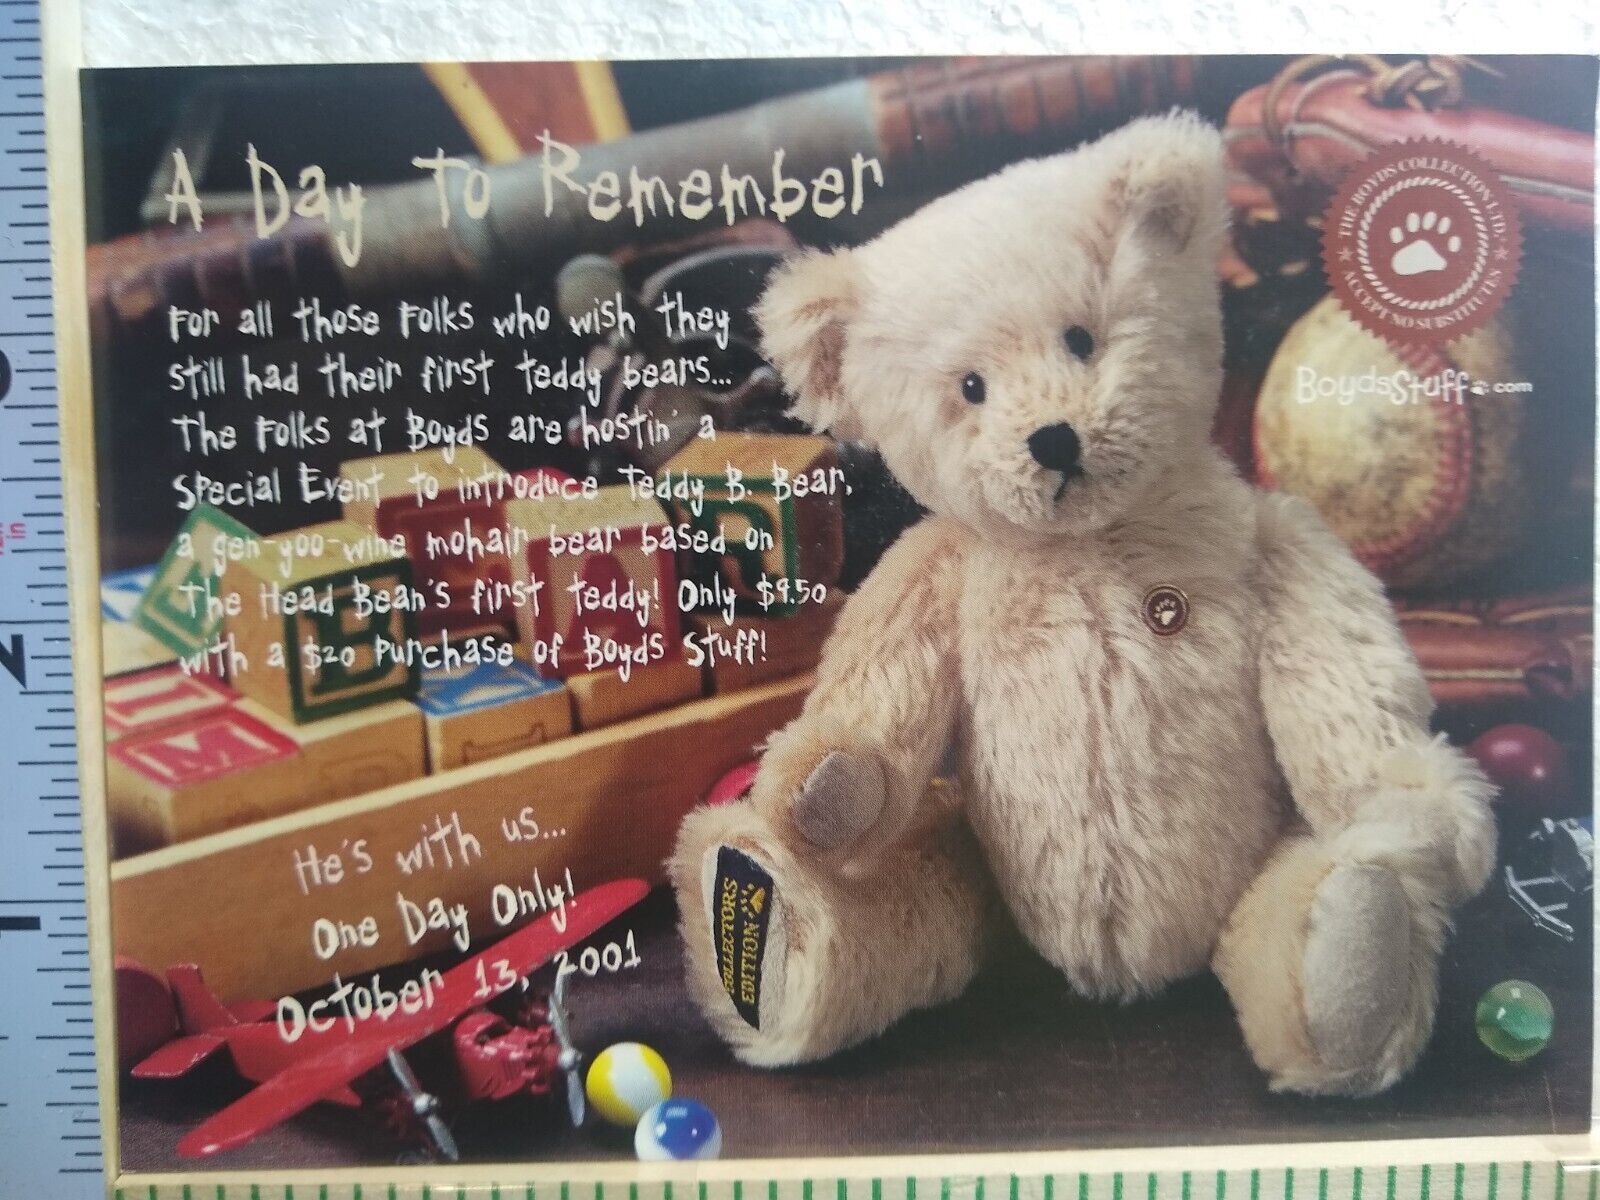 A Day To Remember
For all those Folks who wish they
still had their first teddy bears...
The Folks at Boyds are hostin' a
Special Event to introduce Teddy B. Bear,
a gen-yoo-wine mohair bear based on
The Head Bean's first teddy! Only $9.50
with a $20 Purchase of Boyds Stuff!
He's with us...
One Day Only!
October 13, 2001
THE BOYDS COLLECTION LTD.
ACCEPT NO SUBSTITUTES
BoydsStuff.com
COLLECTORS
EDITION
B
A
R
M
2
1
in